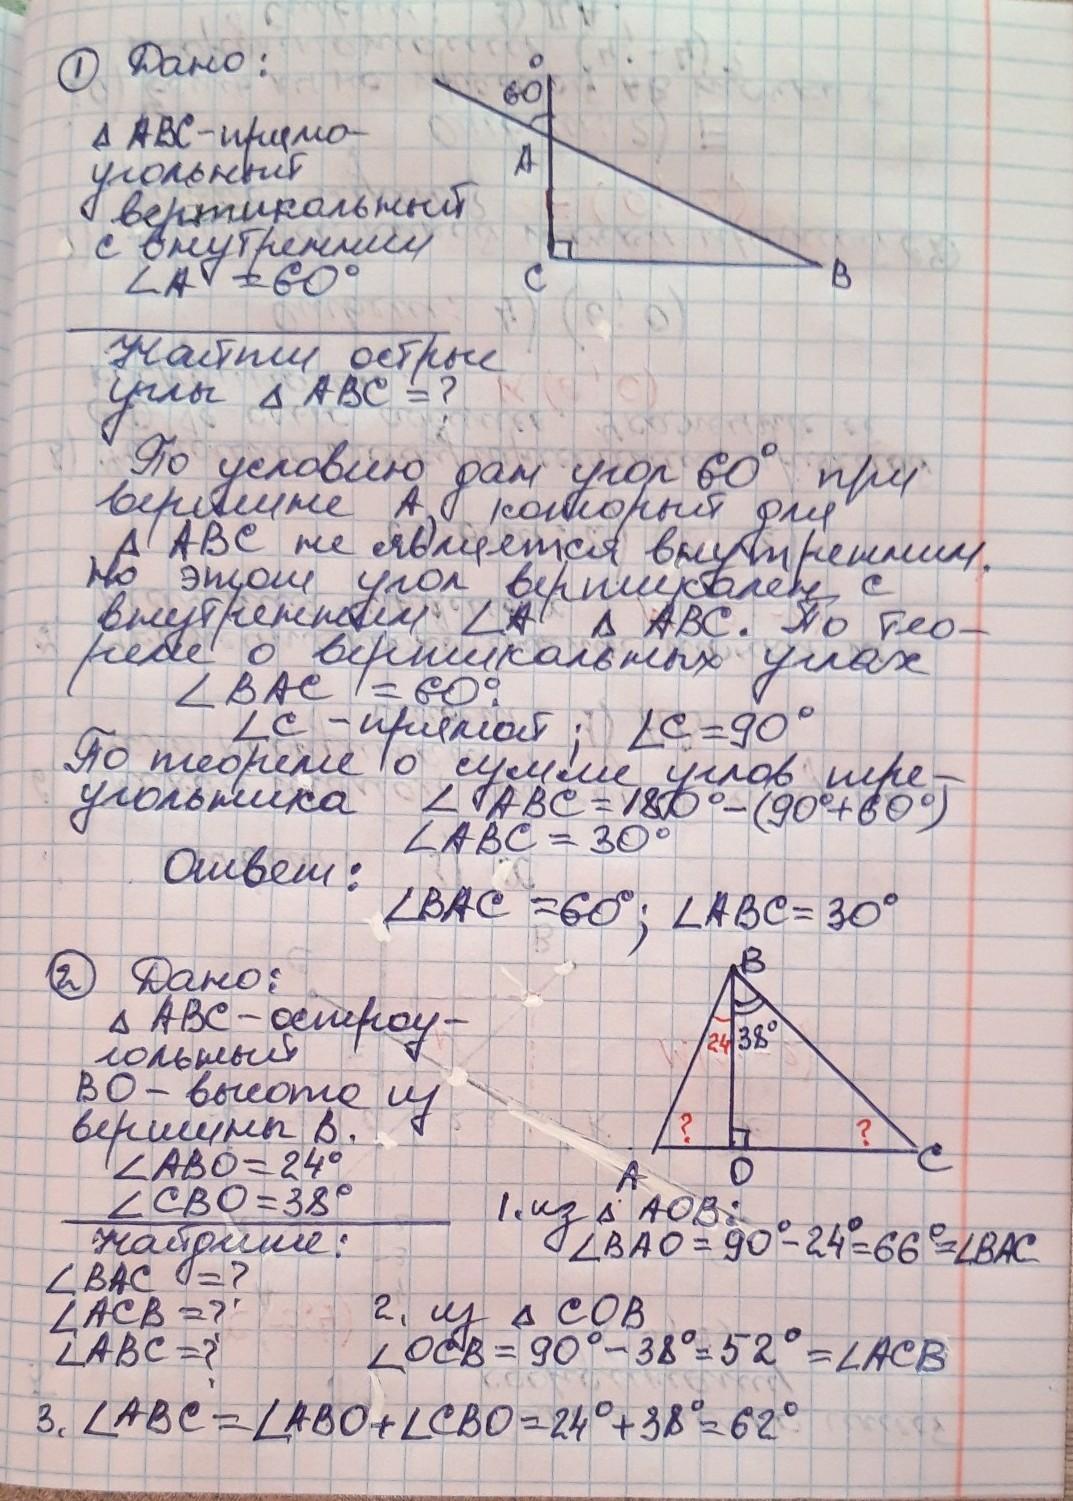 ① Дано:
60°
Δ ABC - прямо-
угольный
вертикальный
с внутренним
∠A = 60°
A
C
B
Найти острые
углы Δ ABC = ?
По условию дан угол 60° при
вершине A, который для
Δ ABC не является внутренним.
Но этот угол вертикален с
внутренним ∠A Δ ABC. По тео-
реме о вертикальных углах
∠BAC = 60°.
∠C - прямой; ∠C = 90°
По теореме о сумме углов тре-
угольника ∠ABC = 180° - (90° + 60°)
∠ABC = 30°
Ответ:
∠BAC = 60°; ∠ABC = 30°
② Дано:
Δ ABC - остроу-
гольный
BO - высота из
вершины B.
∠ABO = 24°
∠CBO = 38°
B
24 38°
? ?
A O C
Найдите:
∠BAC = ?
∠ACB = ?
∠ABC = ?
1. из Δ AOB:
∠BAO = 90° - 24° = 66° = ∠BAC
2. из Δ COB
∠OCB = 90° - 38° = 52° = ∠ACB
3. ∠ABC = ∠ABO + ∠CBO = 24° + 38° = 62°